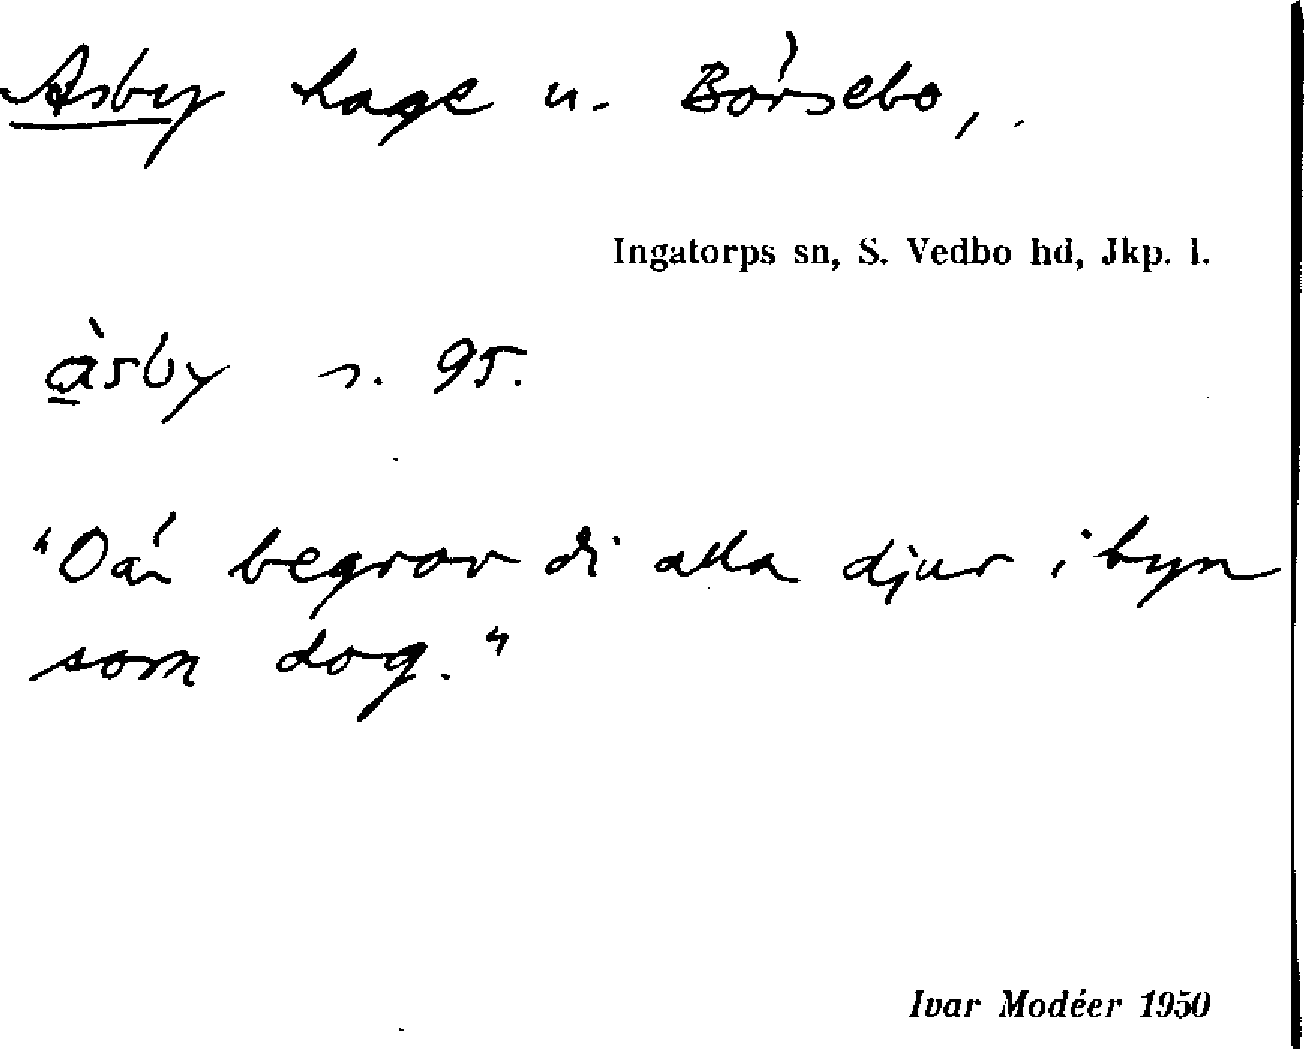 Asby hage u. Börsebo,
Ingatorps sn, S. Vedbo hd, Jkp. l.
àsby s. 95.
"Dän begrov di alla djur i byn
som dog."
Ivar Modéer 1950